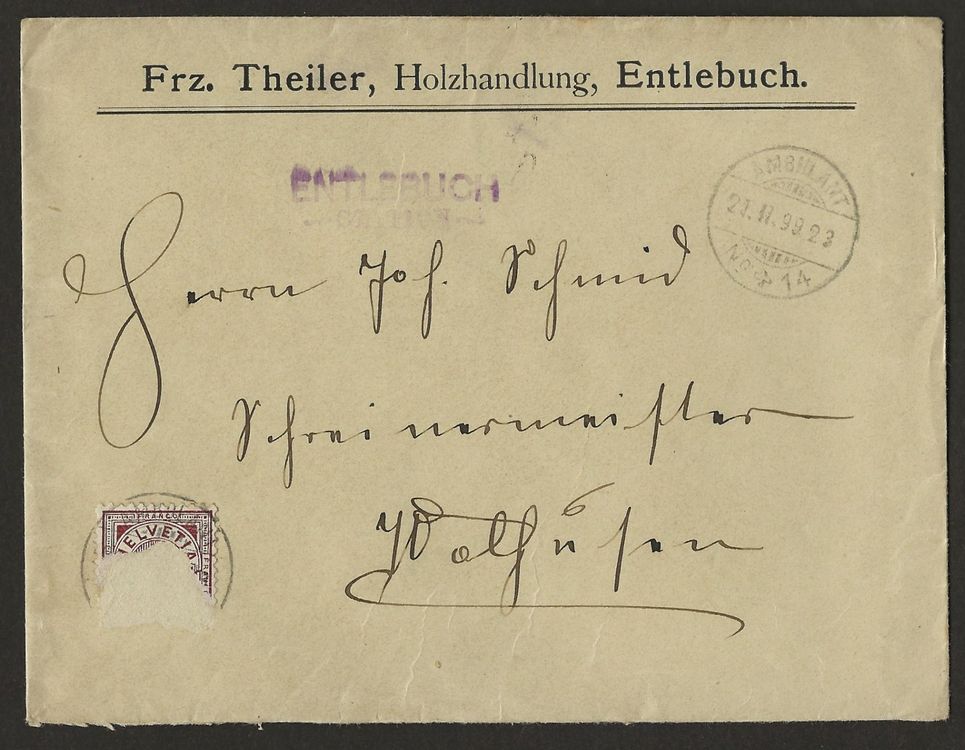 Frz. Theiler, Holzhandlung, Entlebuch.
ENTLEBUCH
AMBULANT
21.II.99.23
No 14
Herrn Joh. Schmid
Schreinermeister
Wolhusen
FRANCO
HELVETIA